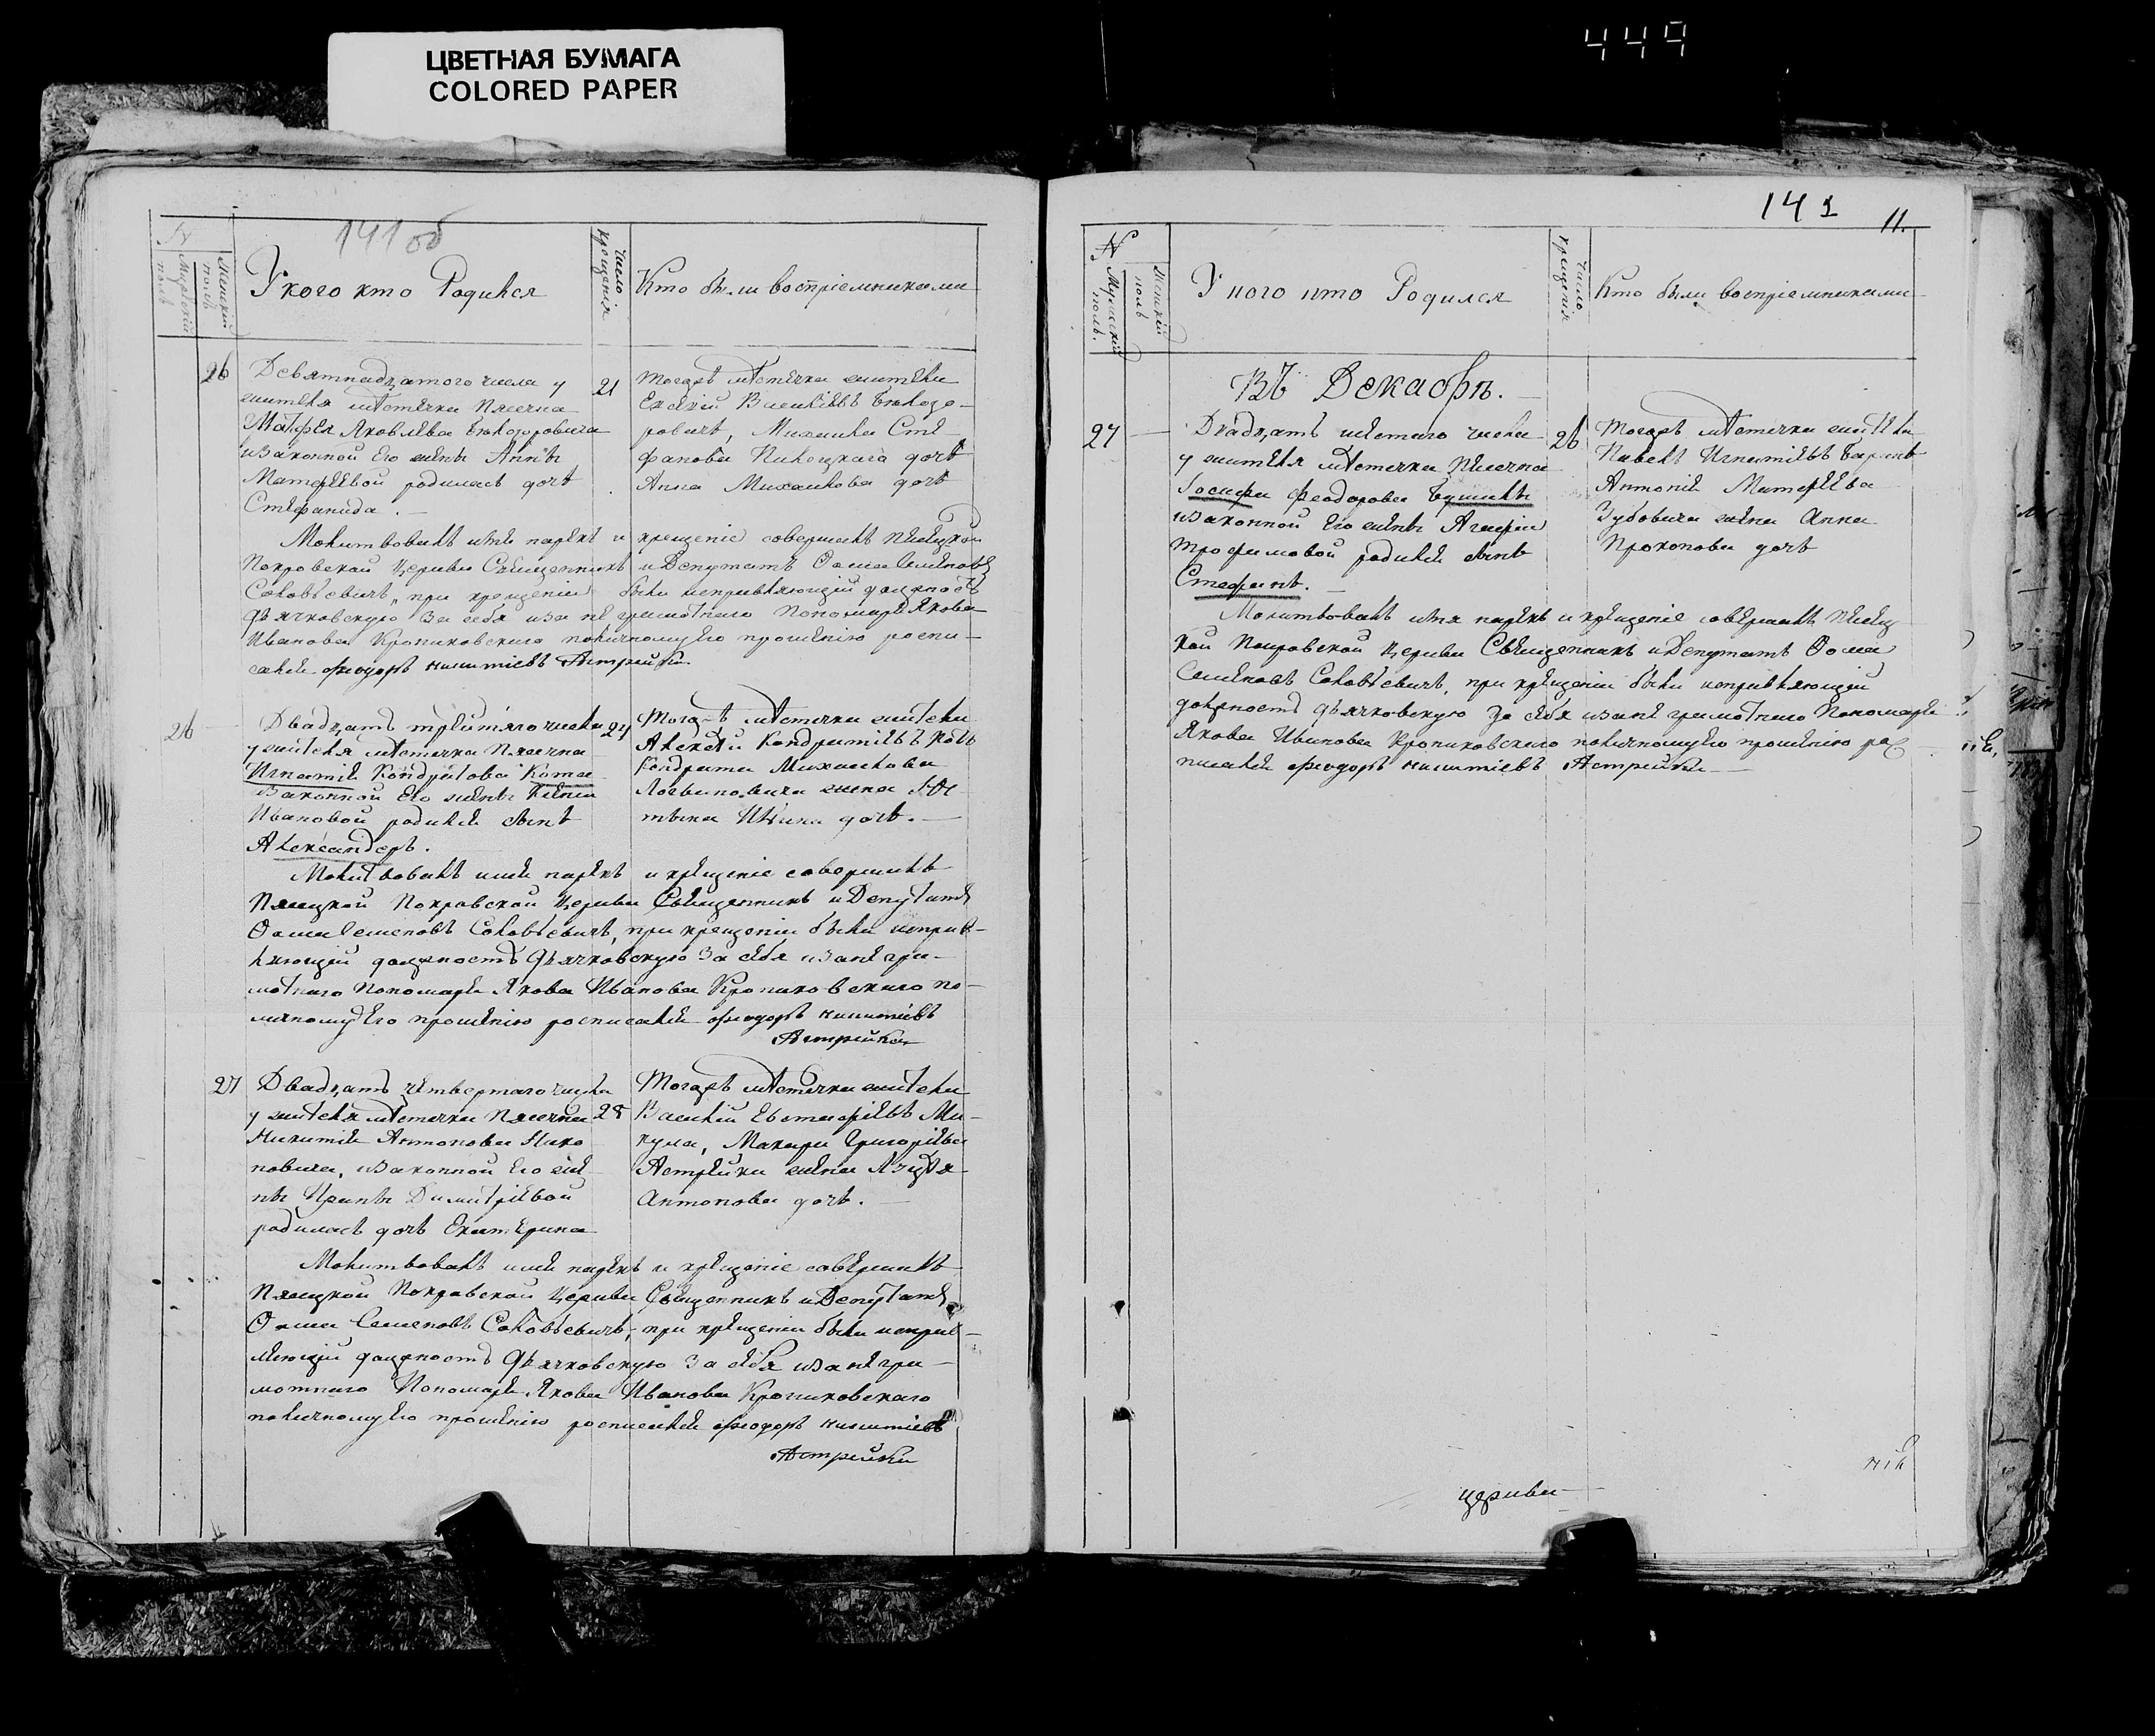 ЦВЕТНАЯ БУМАГА
COLORED PAPER
449
141 об
№
Мужескій полъ
Женскій полъ
У кого кто Родился
Число крещенія
Кто были воспріемниками
26
Девятнадцатого числа у
жителя мѣстечка Пясечна
Матфея Яковлева Бѣлозоровича
изаконной Его жены Анны
Матфеевой родилась дочь
Стефанида.
21
Тогожъ мѣстечка жители
Василіевъ Бѣлозо-
ровичъ, Михаила Сте-
фанова дочь
Анна Михайлова дочь
Молитвовалъ имя нареклъ и крещеніе совершалъ Пясецкой
Покровской Церкви Священникъ и Депутатъ Ѳома Семеновъ
Соловьевичъ, при крещеніи были исправляющій должность
дьячковскую За себя иза не грамотнаго Пономаря Якова
Иванова Кропиховскаго поличномуЕго прошенію роспи-
сался Феодоръ Никитіевъ Астрейка
26
Двадцать третьяго числа
у жителя мѣстечка Пясечна
Игнатія Кондратова Кота
Изаконной Его жены Ксеніи
Ивановой родился сынъ
Александръ.
24
Тогожъ мѣстечка жители
Алексѣй Кондратіевъ Котъ
Кондрата Михайлова
жена Юс-
тына Ильина дочь.
Молитвовалъ имя нареклъ и крещеніе совершалъ
Пясецкой Покровской Церкви Священникъ и Депутатъ
Ѳома Семеновъ Соловьевичъ, при крещеніи были исправ-
ляющій должность дьячковскую За себя иза не гра-
мотнаго Пономаря Якова Иванова Кропиховскаго по-
личномуЕго прошенію росписался Феодоръ Никитіевъ
Астрейка
27
Двадцать четвертаго числа
у жителя мѣстечка Пясечна
Никитія Антонова
новича, изаконной Его же-
ны Ирины Димитріевой
родилась дочь Екатерина
28
Тогожъ мѣстечка жители
Василій Евстафіевъ Ми-
кула, Макара Григоріева
Астрейки жена
Антонова дочь.
Молитвовалъ имя нареклъ и крещеніе совершалъ
Пясецкой Покровской Церкви Священникъ и Депутатъ
Ѳома Семеновъ Соловьевичъ, при крещеніи были исправ-
ляющій должность дьячковскую За себя иза не гра-
мотнаго Пономаря Якова Иванова Кропиховскаго
поличномуЕго прошенію росписался Феодоръ Никитіевъ
Астрейка
141
11.
№
Мужескій полъ.
Женскій полъ
У кого кто Родился
Число крещенія
Кто были воспріемниками
Въ Декабрѣ.
27
Двадцать шестаго числа
у жителя мѣстечка Пясечна
Іосифа Феодорова Бушилы
изаконной Его жены Агафіи
Трофимовой родился сынъ
Стефанъ.
26
Тогожъ мѣстечка жители
Павелъ Игнатіевъ
Антонія Матфеева
Зубовича жена Анна
Прокопова дочь
Молитвовалъ имя нареклъ и крещеніе совершалъ Пясец-
кой Покровской Церкви Священникъ и Депутатъ Ѳома
Семеновъ Соловьевичъ, при крещеніи были исправляющій
должность дьячковскую За себя иза не грамотнаго Пономаря
Якова Иванова Кропиховскаго поличномуЕго прошенію рос-
писался Феодоръ Никитіевъ Астрейка
церкви